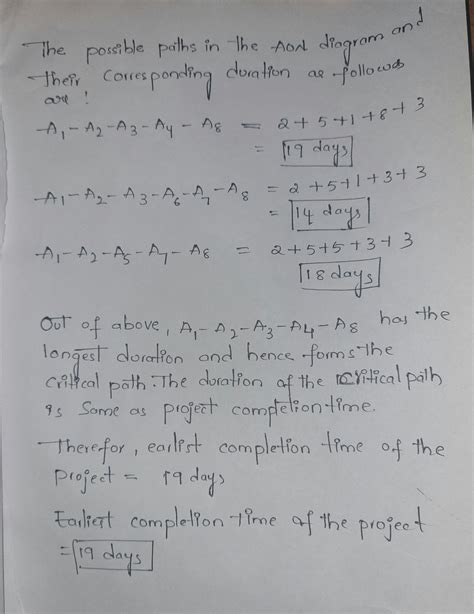 The possible paths in the AON diagram and
their corresponding duration as follows
are!
A1-A2-A3-A4-A8 = 2+5+1+8+3
= 19 days
A1-A2-A3-A6-A7-A8 = 2+5+1+3+3
= 14 days
A1-A2-A5-A7-A8 = 2+5+5+3+3
18 days
Out of above, A1-A2-A3-A4-A8 has the
longest duration and hence forms the
critical path. The duration of the critical path
is same as project completion time.
Therefor, earlist completion time of the
project = 19 days
Earliest completion time of the project
= 19 days